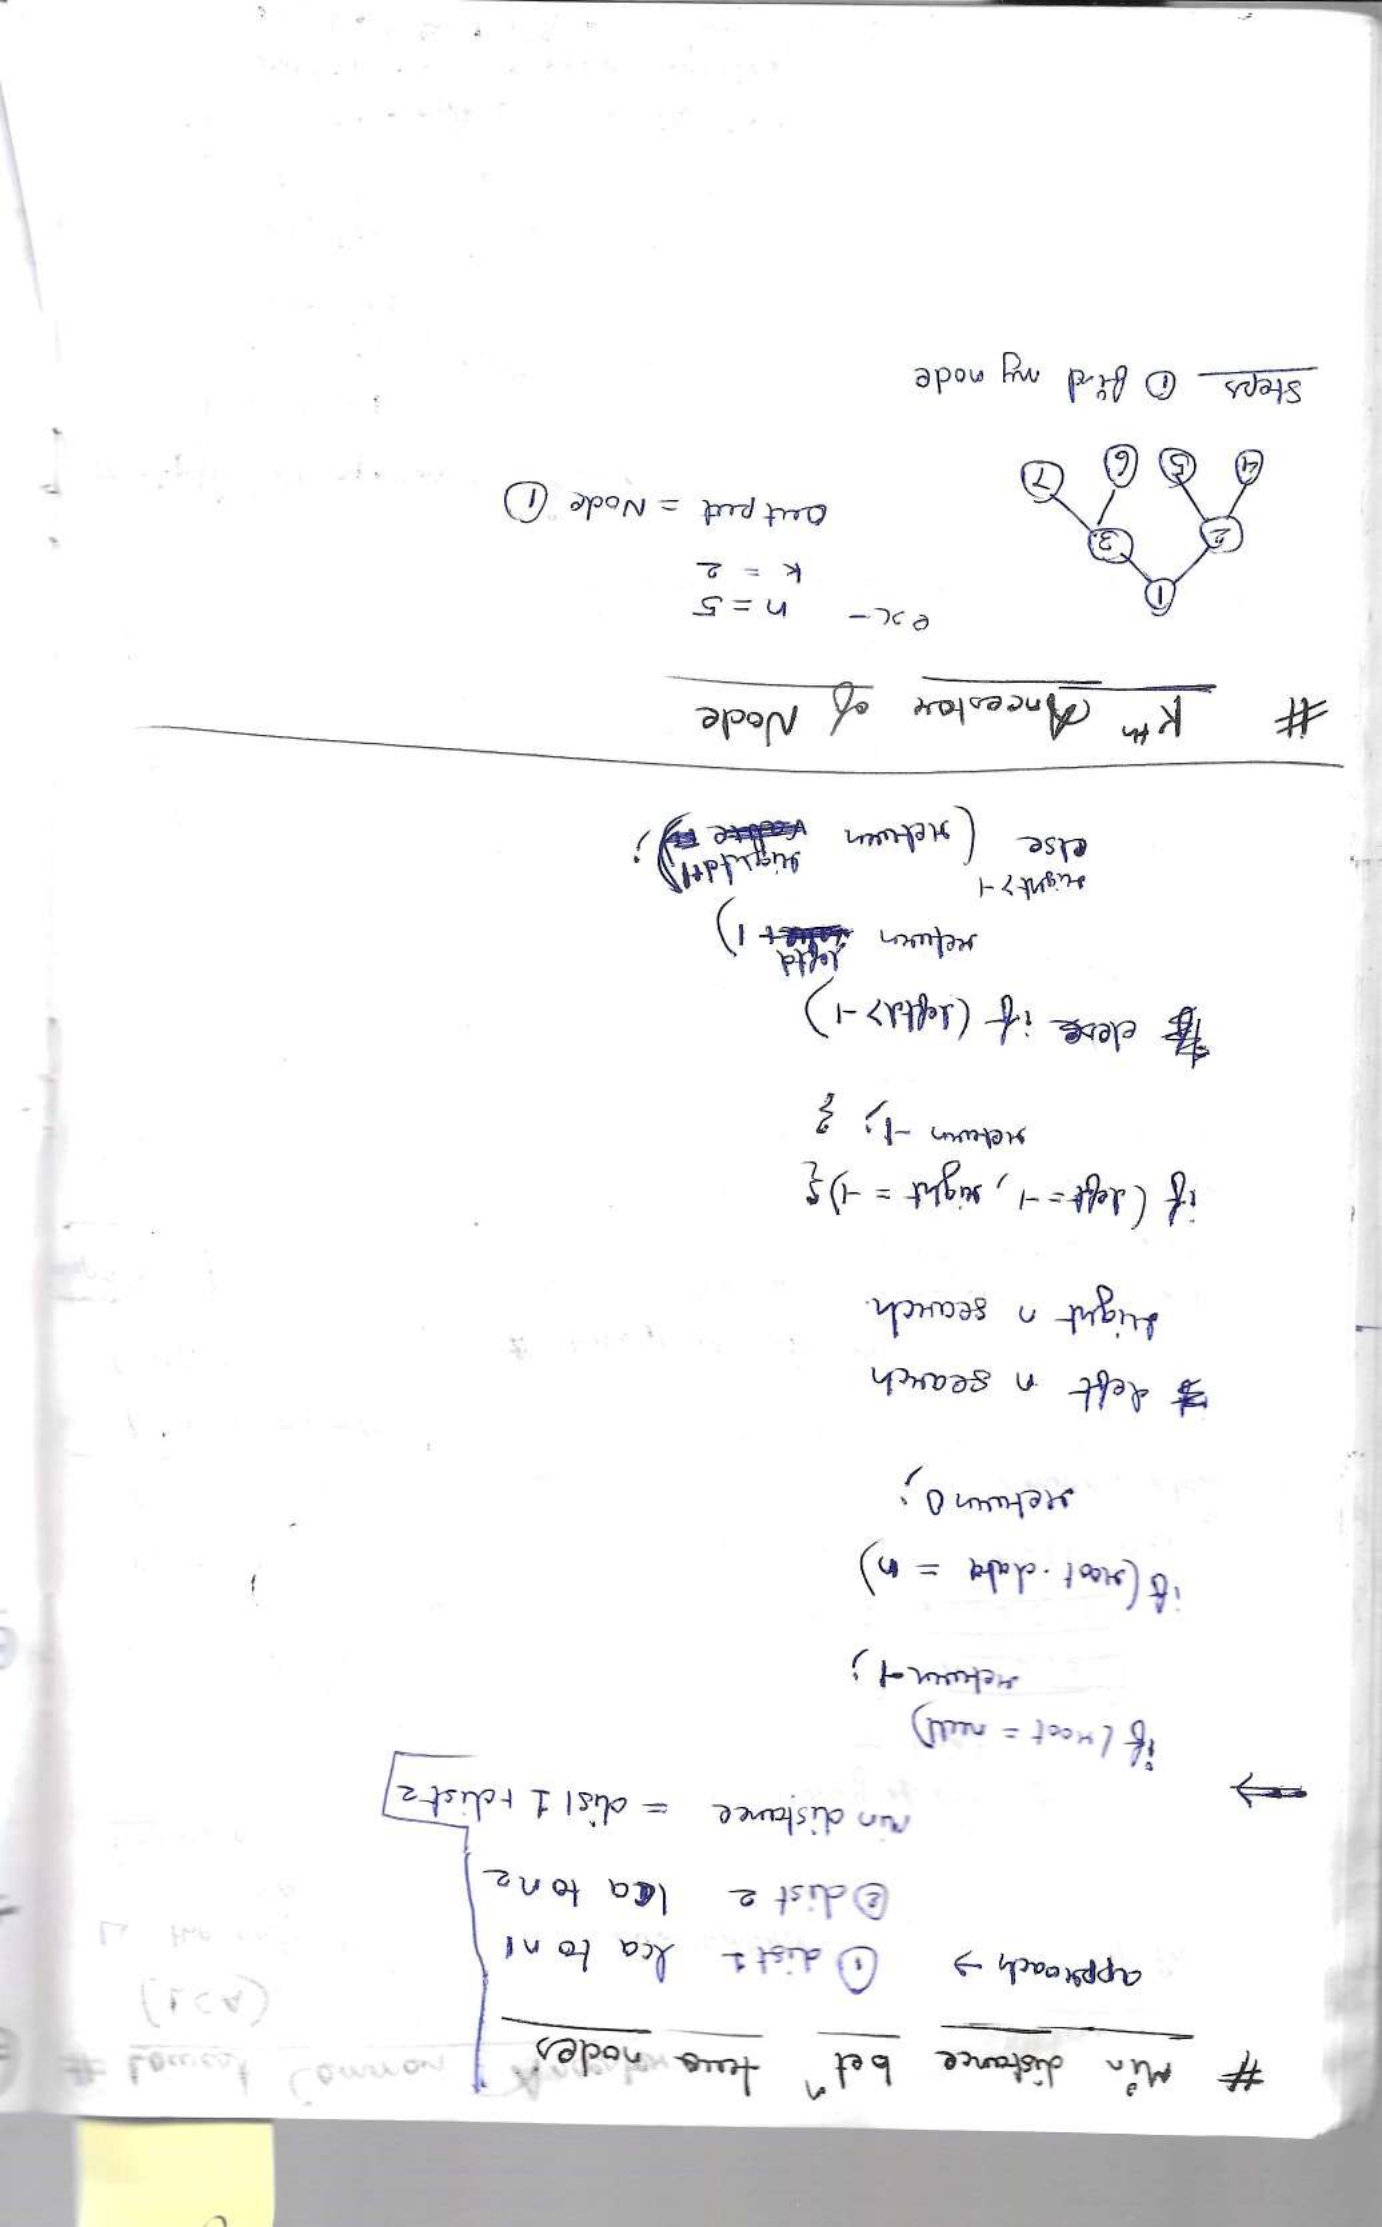 # Min distance betⁿ two nodes
approach → ① dist 1 lca to n1
② dist 2 lca to n2
Min distance = dist 1 + dist 2
if (root = null)
return -1;
if (root.data = n)
return 0;
left n search
right n search.
if (left = -1, right = -1) {
return -1; }
else if (leftd > -1)
return leftd + 1)
else (return rightd+1);
right > -1
# Kth Ancestor of Node
ex- n = 5
k = 2
output = Node ①
1
2 3
4 5 6 7
Steps ① find my node
# Lowest Common Ancestor
(LCA)